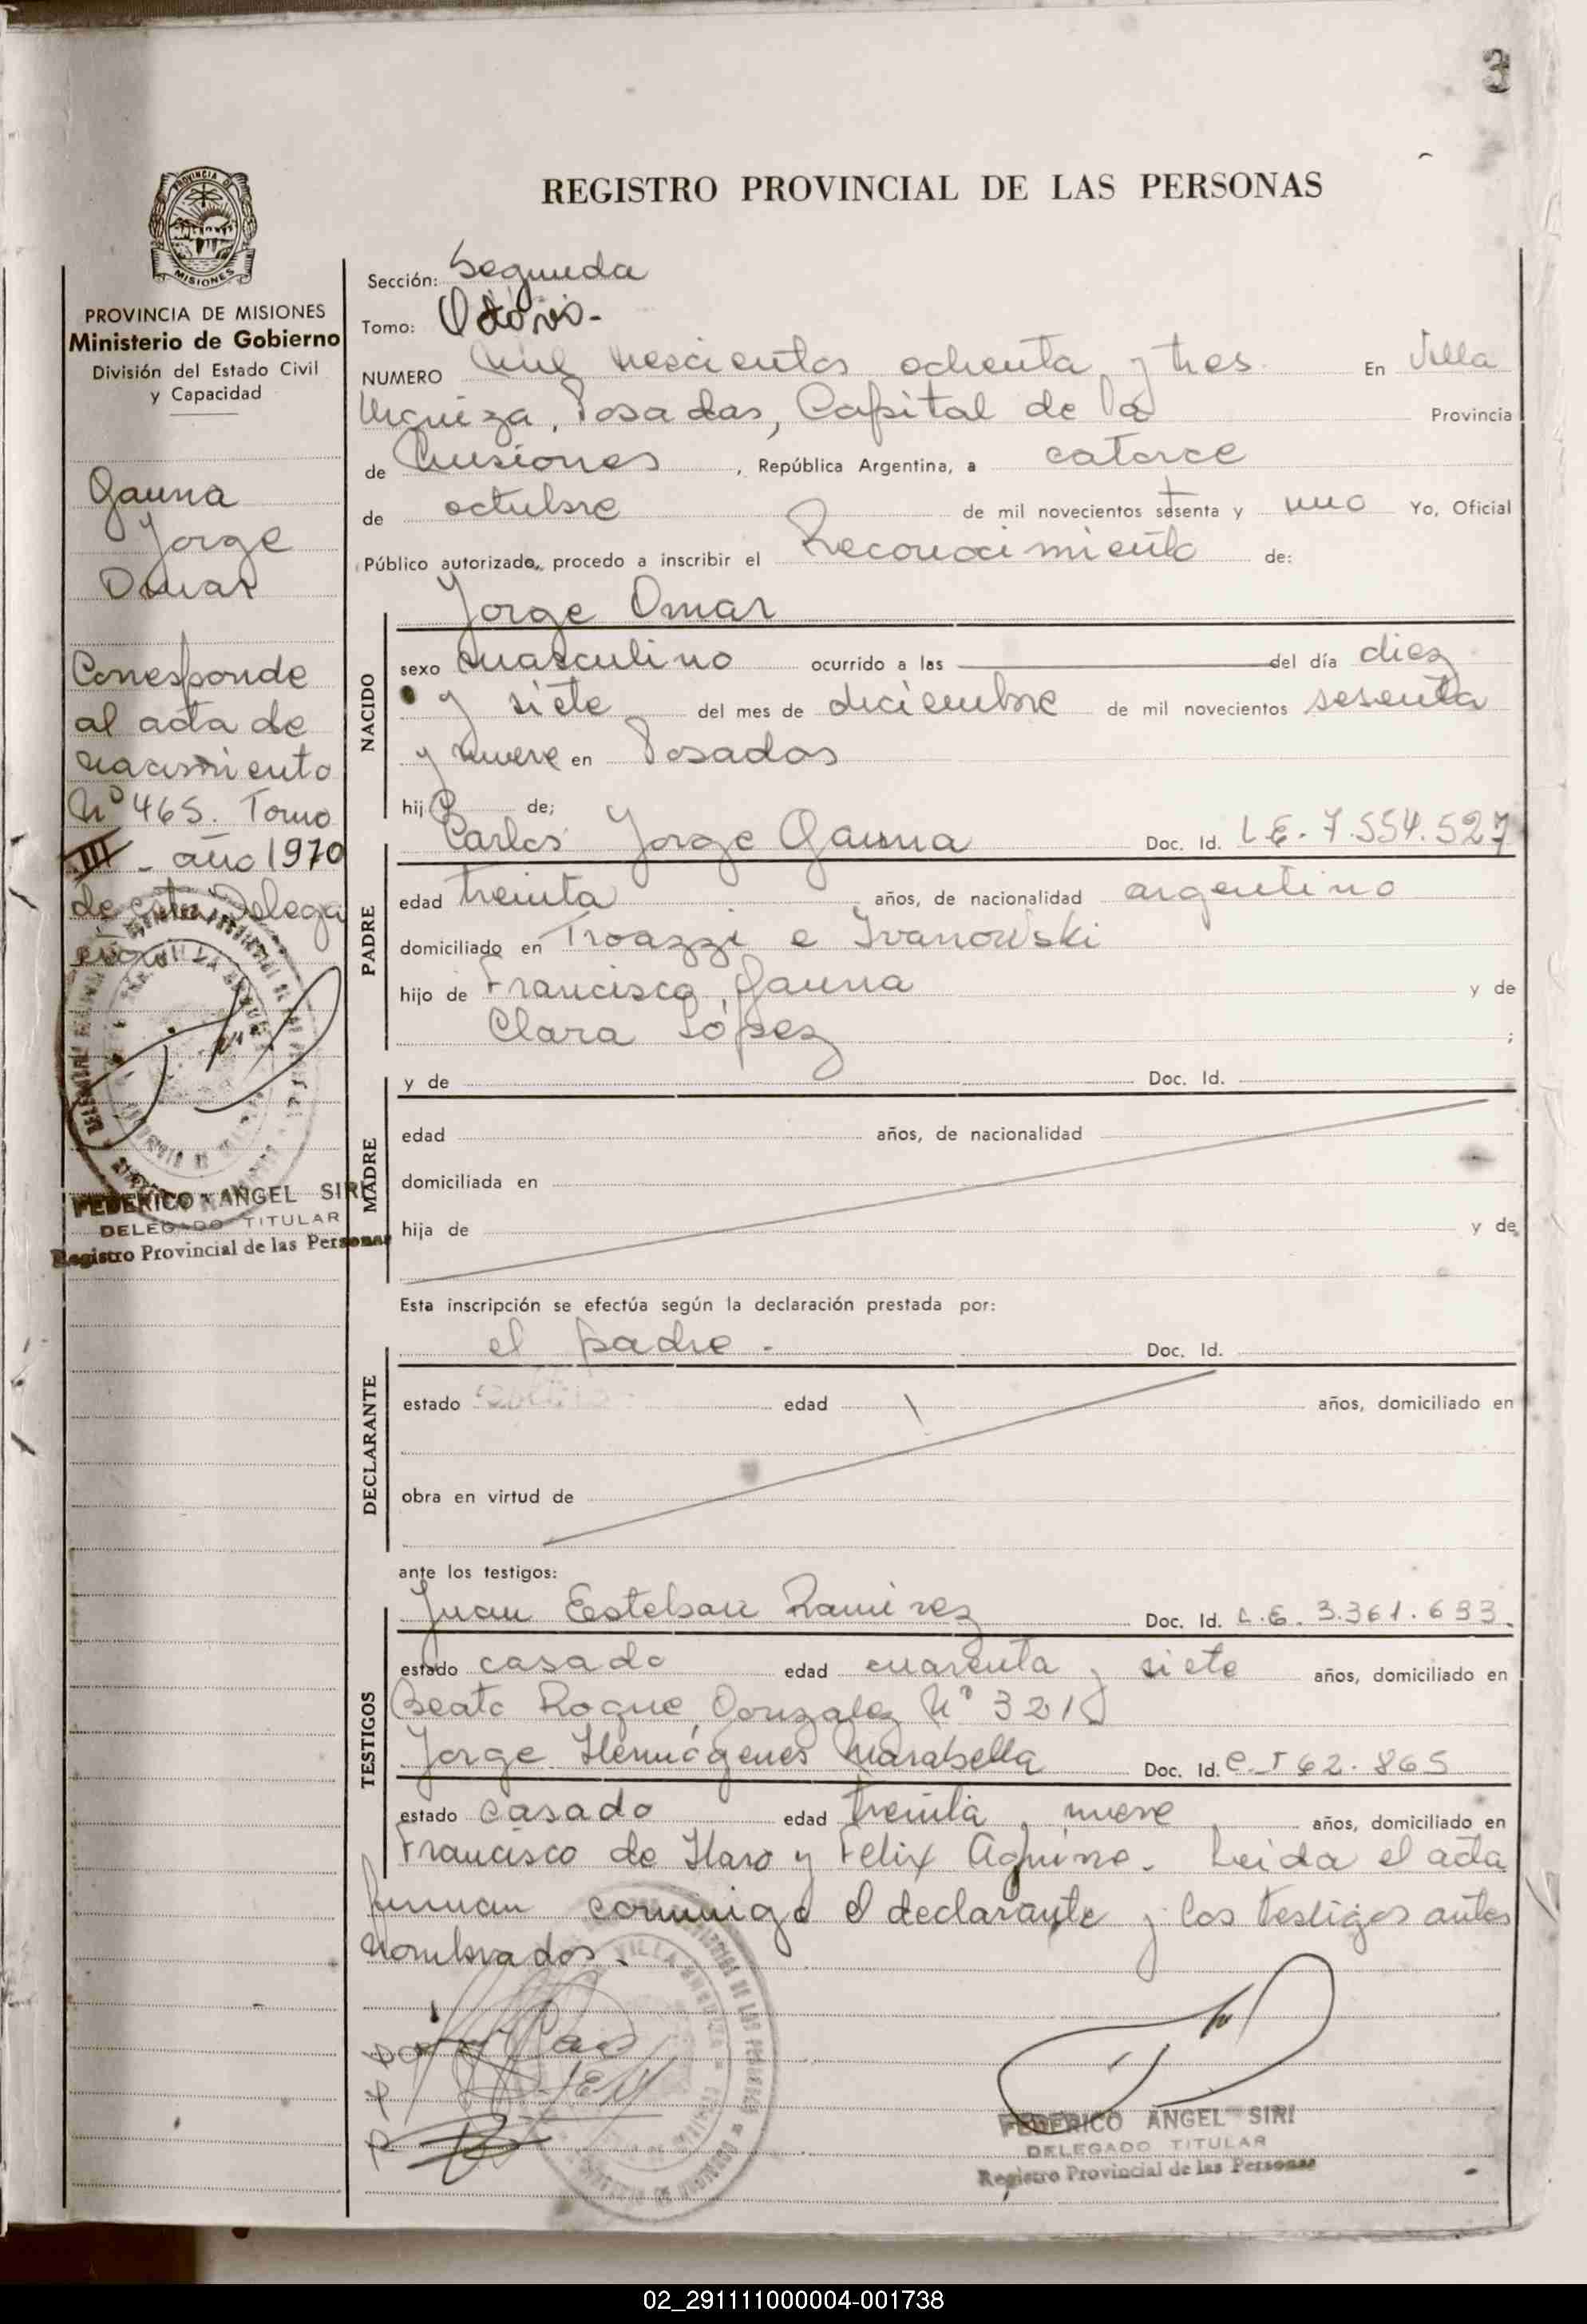 3
REGISTRO PROVINCIAL DE LAS PERSONAS
PROVINCIA DE
MISIONES
PROVINCIA DE MISIONES
Ministerio de Gobierno
División del Estado Civil
y Capacidad
Gauna
Jorge
Omar
Corresponde
al acta de
nacimiento
Nº 465. Tomo
III - año 1970
de esta Delega
ción
FEDERICO ANGEL SIRI
DELEGADO TITULAR
Registro Provincial de las Personas
Sección: Segunda
Tomo: Octavo-
NUMERO Mil trescientos ochenta y tres En Villa
Urquiza, Posadas, Capital de la Provincia
de Misiones, República Argentina, a catorce
de octubre de mil novecientos setenta y uno Yo, Oficial
Público autorizado, procedo a inscribir el Reconocimiento de:
Jorge Omar
NACIDO
sexo masculino ocurrido a las del día diez
y siete del mes de diciembre de mil novecientos sesenta
y nueve en Posadas
hijo de;
Carlos Jorge Gauna Doc. Id. L.E. 7.554.527
PADRE
edad treinta años, de nacionalidad argentino
domiciliado en Troazzi e Ivanowski
hijo de Francisco Gauna y de
Clara López ;
y de Doc. Id.
MADRE
edad años, de nacionalidad
domiciliada en
hija de y de
Esta inscripción se efectúa según la declaración prestada por:
el padre. Doc. Id.
DECLARANTE
estado edad años, domiciliado en
obra en virtud de
ante los testigos:
Juan Esteban Ramirez Doc. Id. L.E. 3.361.633.
TESTIGOS
estado casado edad cuarenta y siete años, domiciliado en
Beato Roque Gonzalez Nº 321
Jorge Hermógenes Marabella Doc. Id. C.I 62.865
estado casado edad treinta y nueve años, domiciliado en
Francisco de Haro y Felix Aguirre. Leida el acta
firman conmigo el declarante y los testigos antes
nombrados.
FEDERICO ANGEL SIRI
DELEGADO TITULAR
Registro Provincial de las Personas
02_291111000004-001738